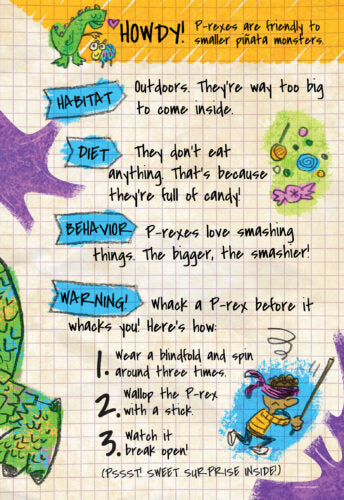 HOWDY! P-rexes are friendly to
smaller piñata monsters.
HABITAT Outdoors. They're way too big
to come inside.
DIET They don't eat
anything. That's because
they're full of candy!
BEHAVIOR P-rexes love smashing
things. The bigger, the smashier!
WARNING! Whack a P-rex before it
whacks you! Here's how:
1. Wear a blindfold and spin
around three times.
2. Wallop the P-rex
with a stick.
3. Watch it
break open!
(PSSST! SWEET SURPRISE INSIDE!)